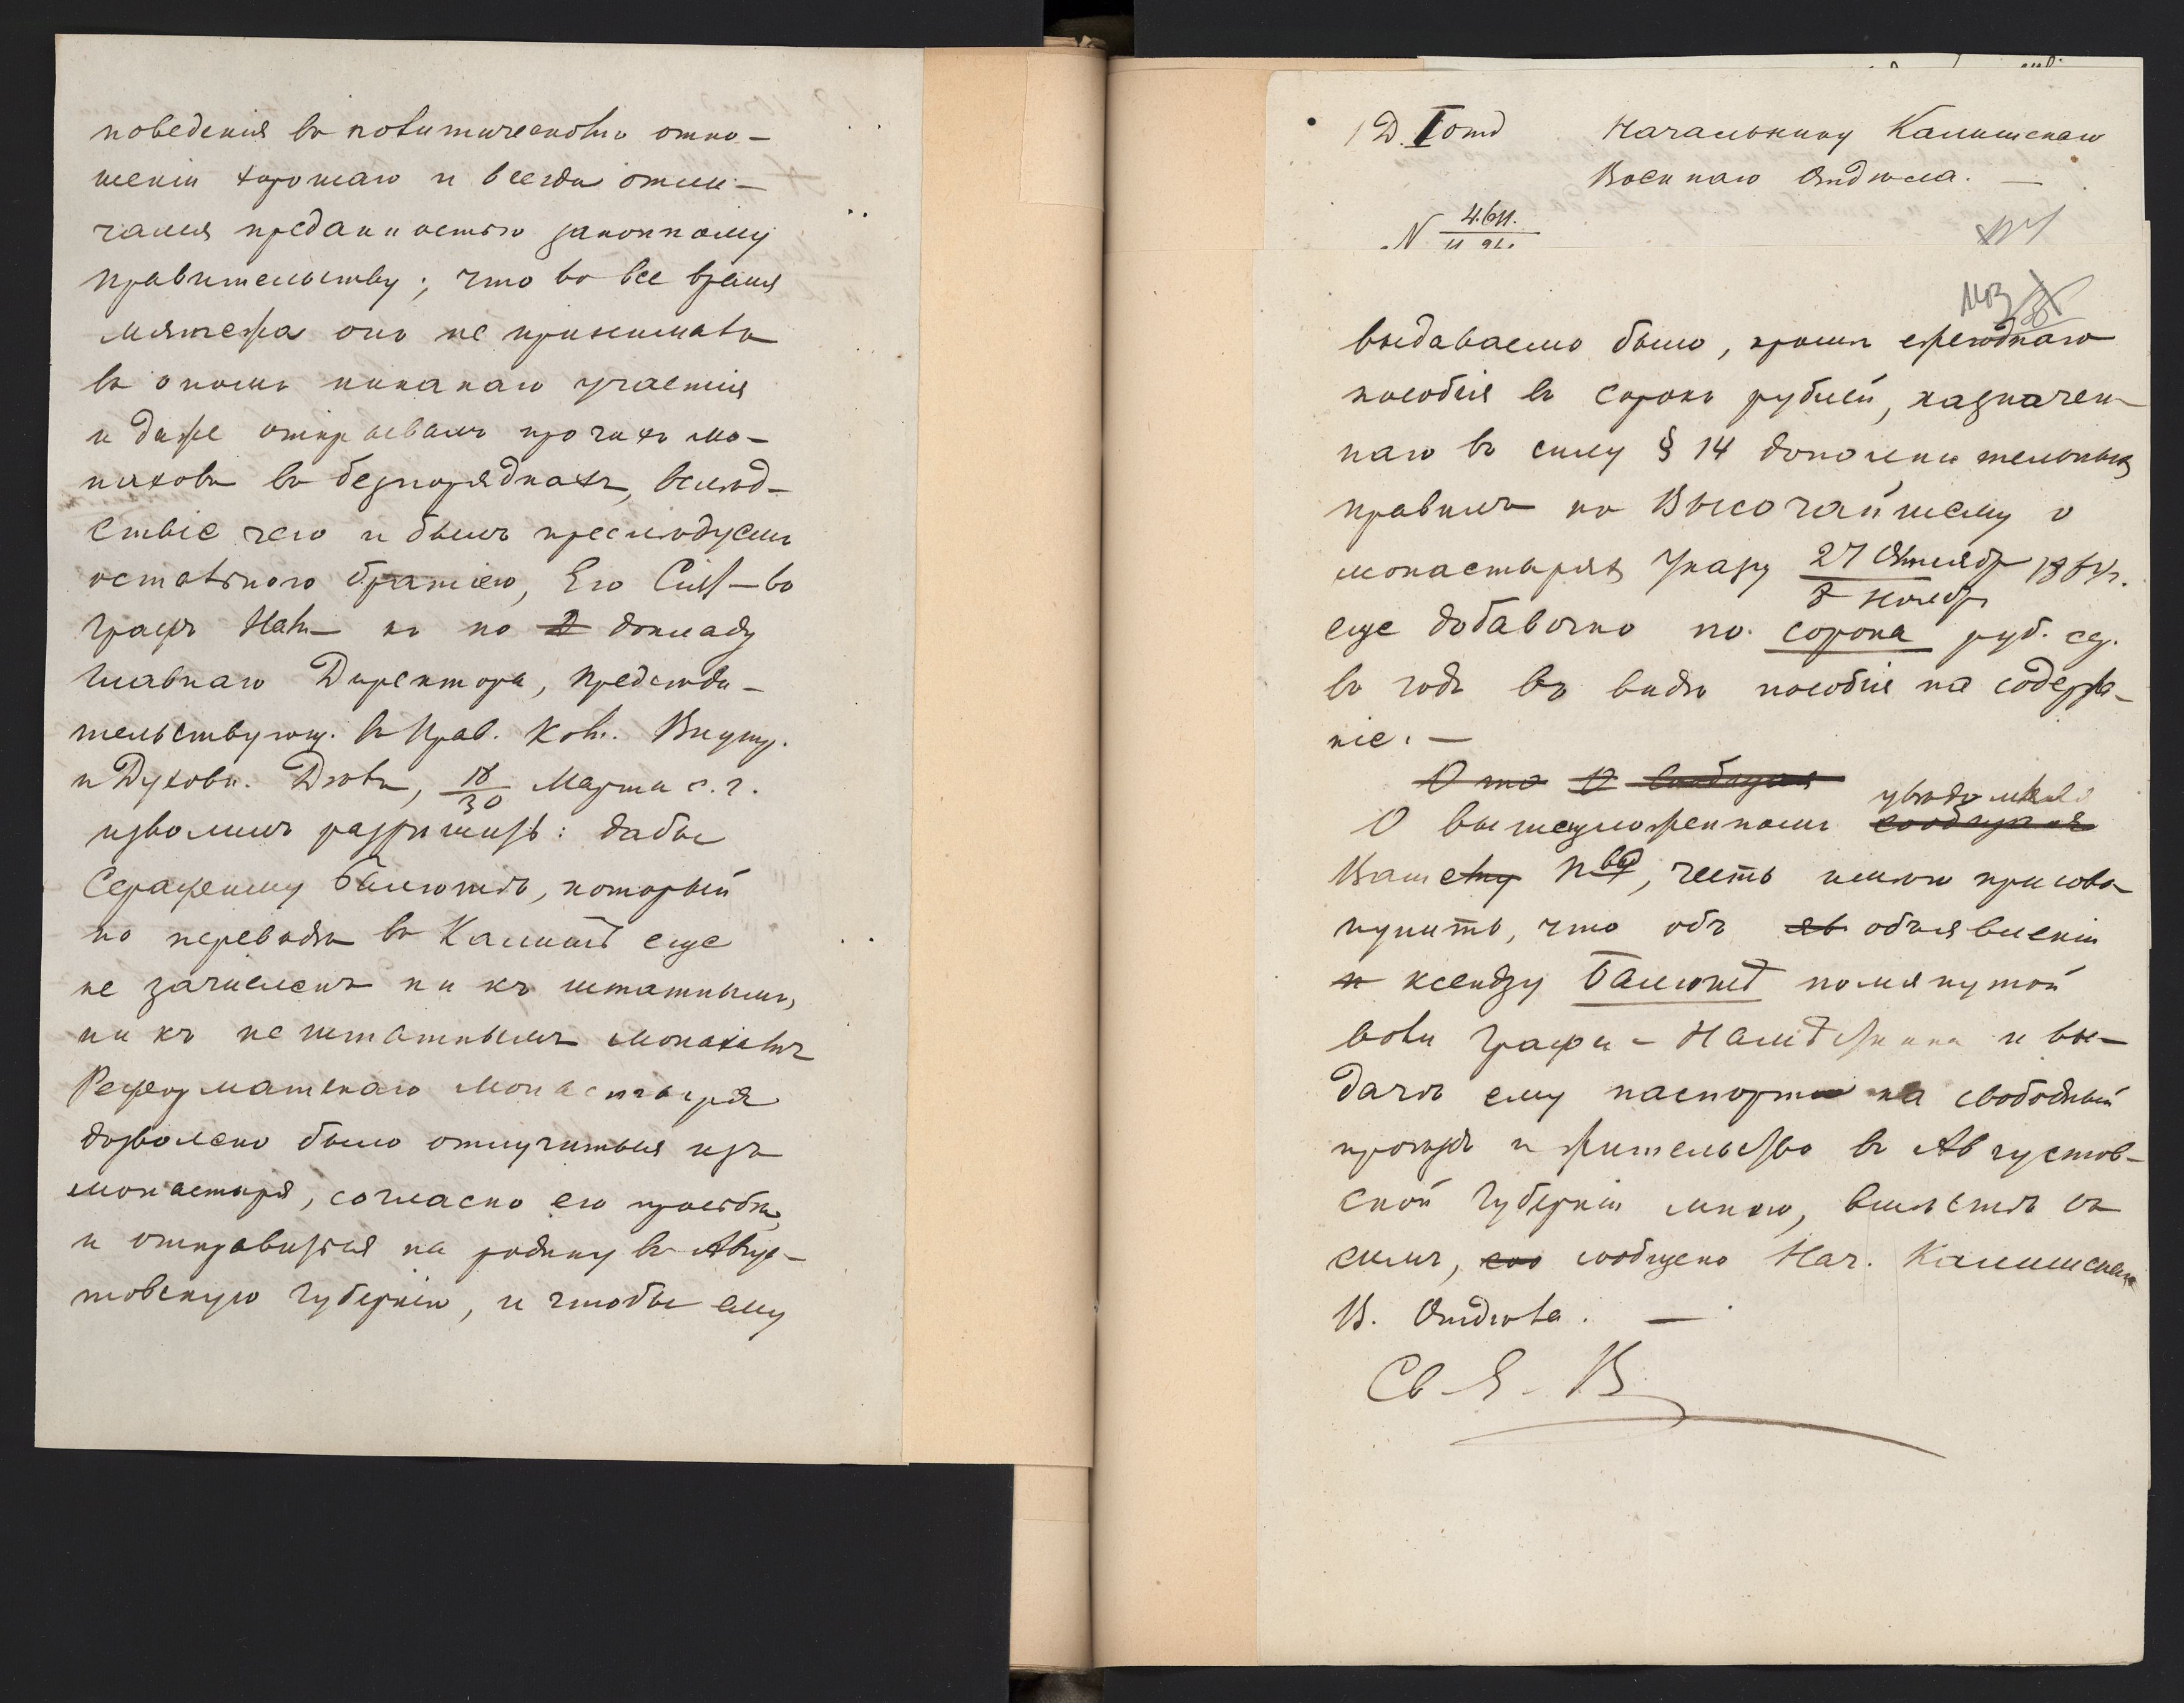 поведенія въ политическомъ отно-
шеніи хорошаго и всегда отли-
чался преданностью законному
правительству; что во все время
мятежа онъ не принималъ
въ ономъ никакаго участія
и даже открывалъ прочихъ мо-
наховъ въ безпорядкахъ, вслѣд-
ствіе чего и былъ преслѣдуемъ
остальною братіею, Его Сія-во
Графъ Нам-къ по 2 докладу
Главнаго Директора, Предсѣда-
тельствующ. въ Прав. Ком. Внутр.
и Духовн. Дѣлъ, 18/30 Марта с. г.
изволилъ разрѣшить: дабы
Серафиму Балюкѣ, который
по переводѣ въ Калишъ еще
не зачисленъ ни къ штатнымъ,
ни къ не штатнымъ монахамъ
Реформатскаго монастыря
дозволено было отлучиться изъ
монастыря, согласно его просьбѣ,
и отправиться на родину въ Авгус-
товскую Губернію, и чтобы ему
1 Д. I отд Начальнику Калишскаго
Военнаго Отдѣла. —
N 4.611.
выдаваемо было, кромѣ ежегоднаго
пособія въ сорокъ рублей, назначен-
наго въ силу § 14 дополнительныхъ
правилъ къ Высочайшему о
монастыряхъ Указу 27 Октября/8 Ноября 1864 г.
еще добавочно по сорока руб. ср.
въ годъ въ видѣ пособія на содержа-
ніе. —
О то О сообщая
О вышеизложенномъ сообщая увѣдомляя
Вашему П, честь имѣю присово-
купить, что объ яв объявленіи
к ксендзу Балюкѣ помянутой
воли Графа-Намѣстника и вы-
дачѣ ему паспорта на свободный
проѣздъ и жительство въ Августов-
ской Губерніи мною, вмѣстѣ съ
симъ, соо сообщено Нач. Калишскаго
В. Отдѣла. —
Св. Е. В.